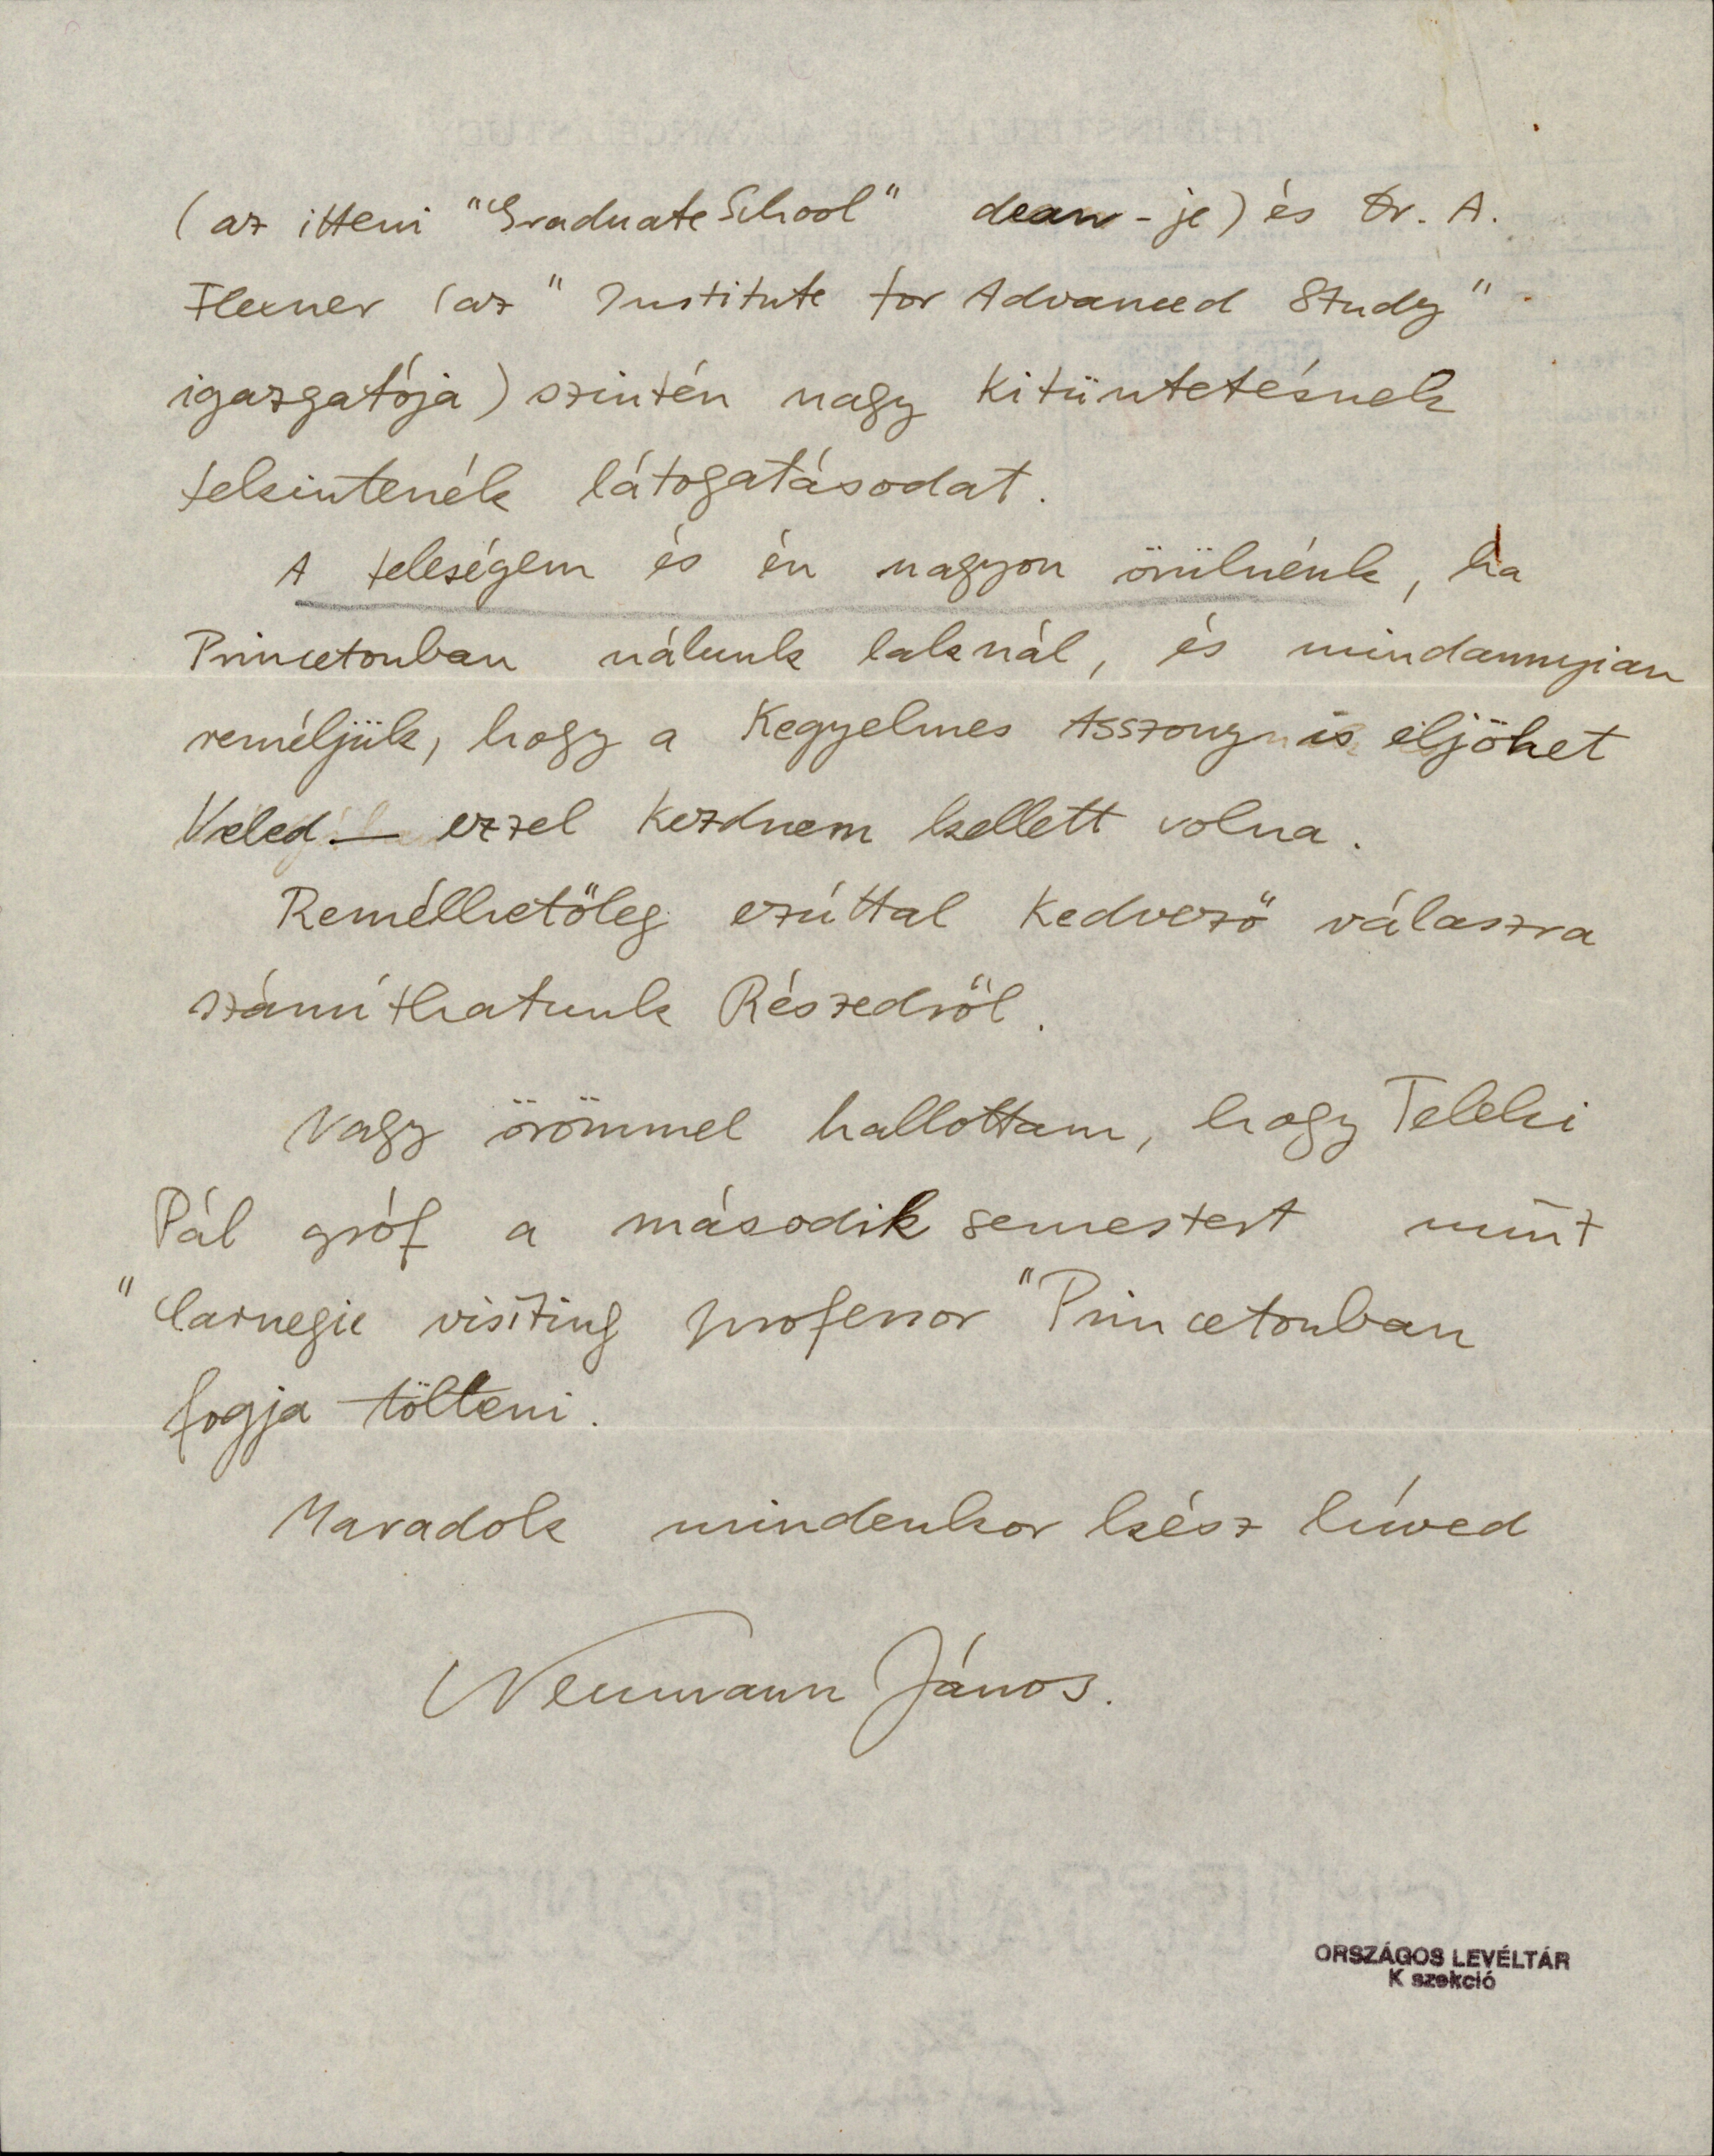 (az itteni "Graduate School" dean-je) és Dr. A.
Flexner (az "Institute for Advanced Study"
igazgatója) szintén nagy kitüntetésnek
tekintenék látogatásodat.
A feleségem és én nagyon örülnénk, ha
Princetonban nálunk laknál, és mindannyian
reméljük, hogy a Kegyelmes Asszony is eljöhet
Veled — ezzel kezdnem kellett volna.
Remélhetőleg ezúttal kedvező válaszra
számíthatunk Részedről.
Nagy örömmel hallottam, hogy Teleki
Pál gróf a második semestert mint
"Carnegie visiting professor" Princetonban
fogja tölteni.
Maradok mindenkor kész híved
Neumann János.
ORSZÁGOS LEVÉLTÁR
K szekció